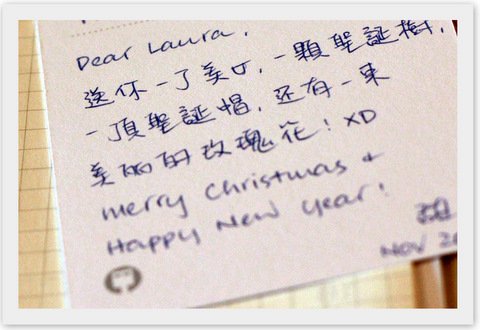 Dear Laura,
送你一了美女,一顆聖誕樹,
一頂聖誕帽,还有一束
美丽的玫瑰花! XD
merry Christmas &
Happy New Year!
NOV